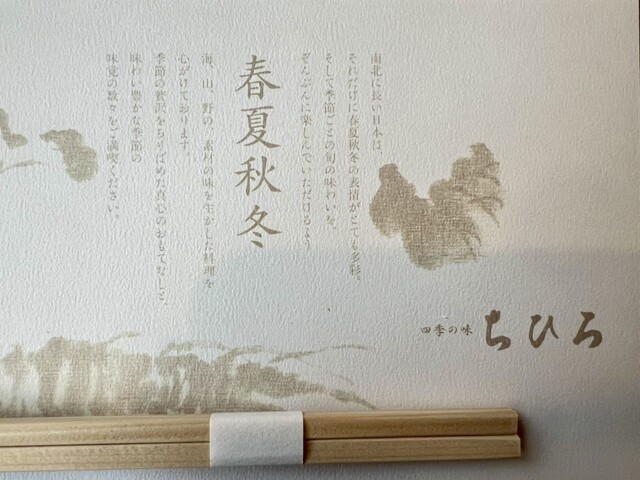 南北に長い日本は、
それだけに春夏秋冬の表情がとても多彩。
そして季節ごとの旬の味わいを、
ぞんぶんに楽しんでいただけるよう
春夏秋冬
海、山、野の、素材の味を生かした料理を
心がけております。
季節の贅沢をちりばめた真心のおもてなしと、
味わい豊かな季節の
味覚の数々をご満喫ください。
四季の味 ちひろ